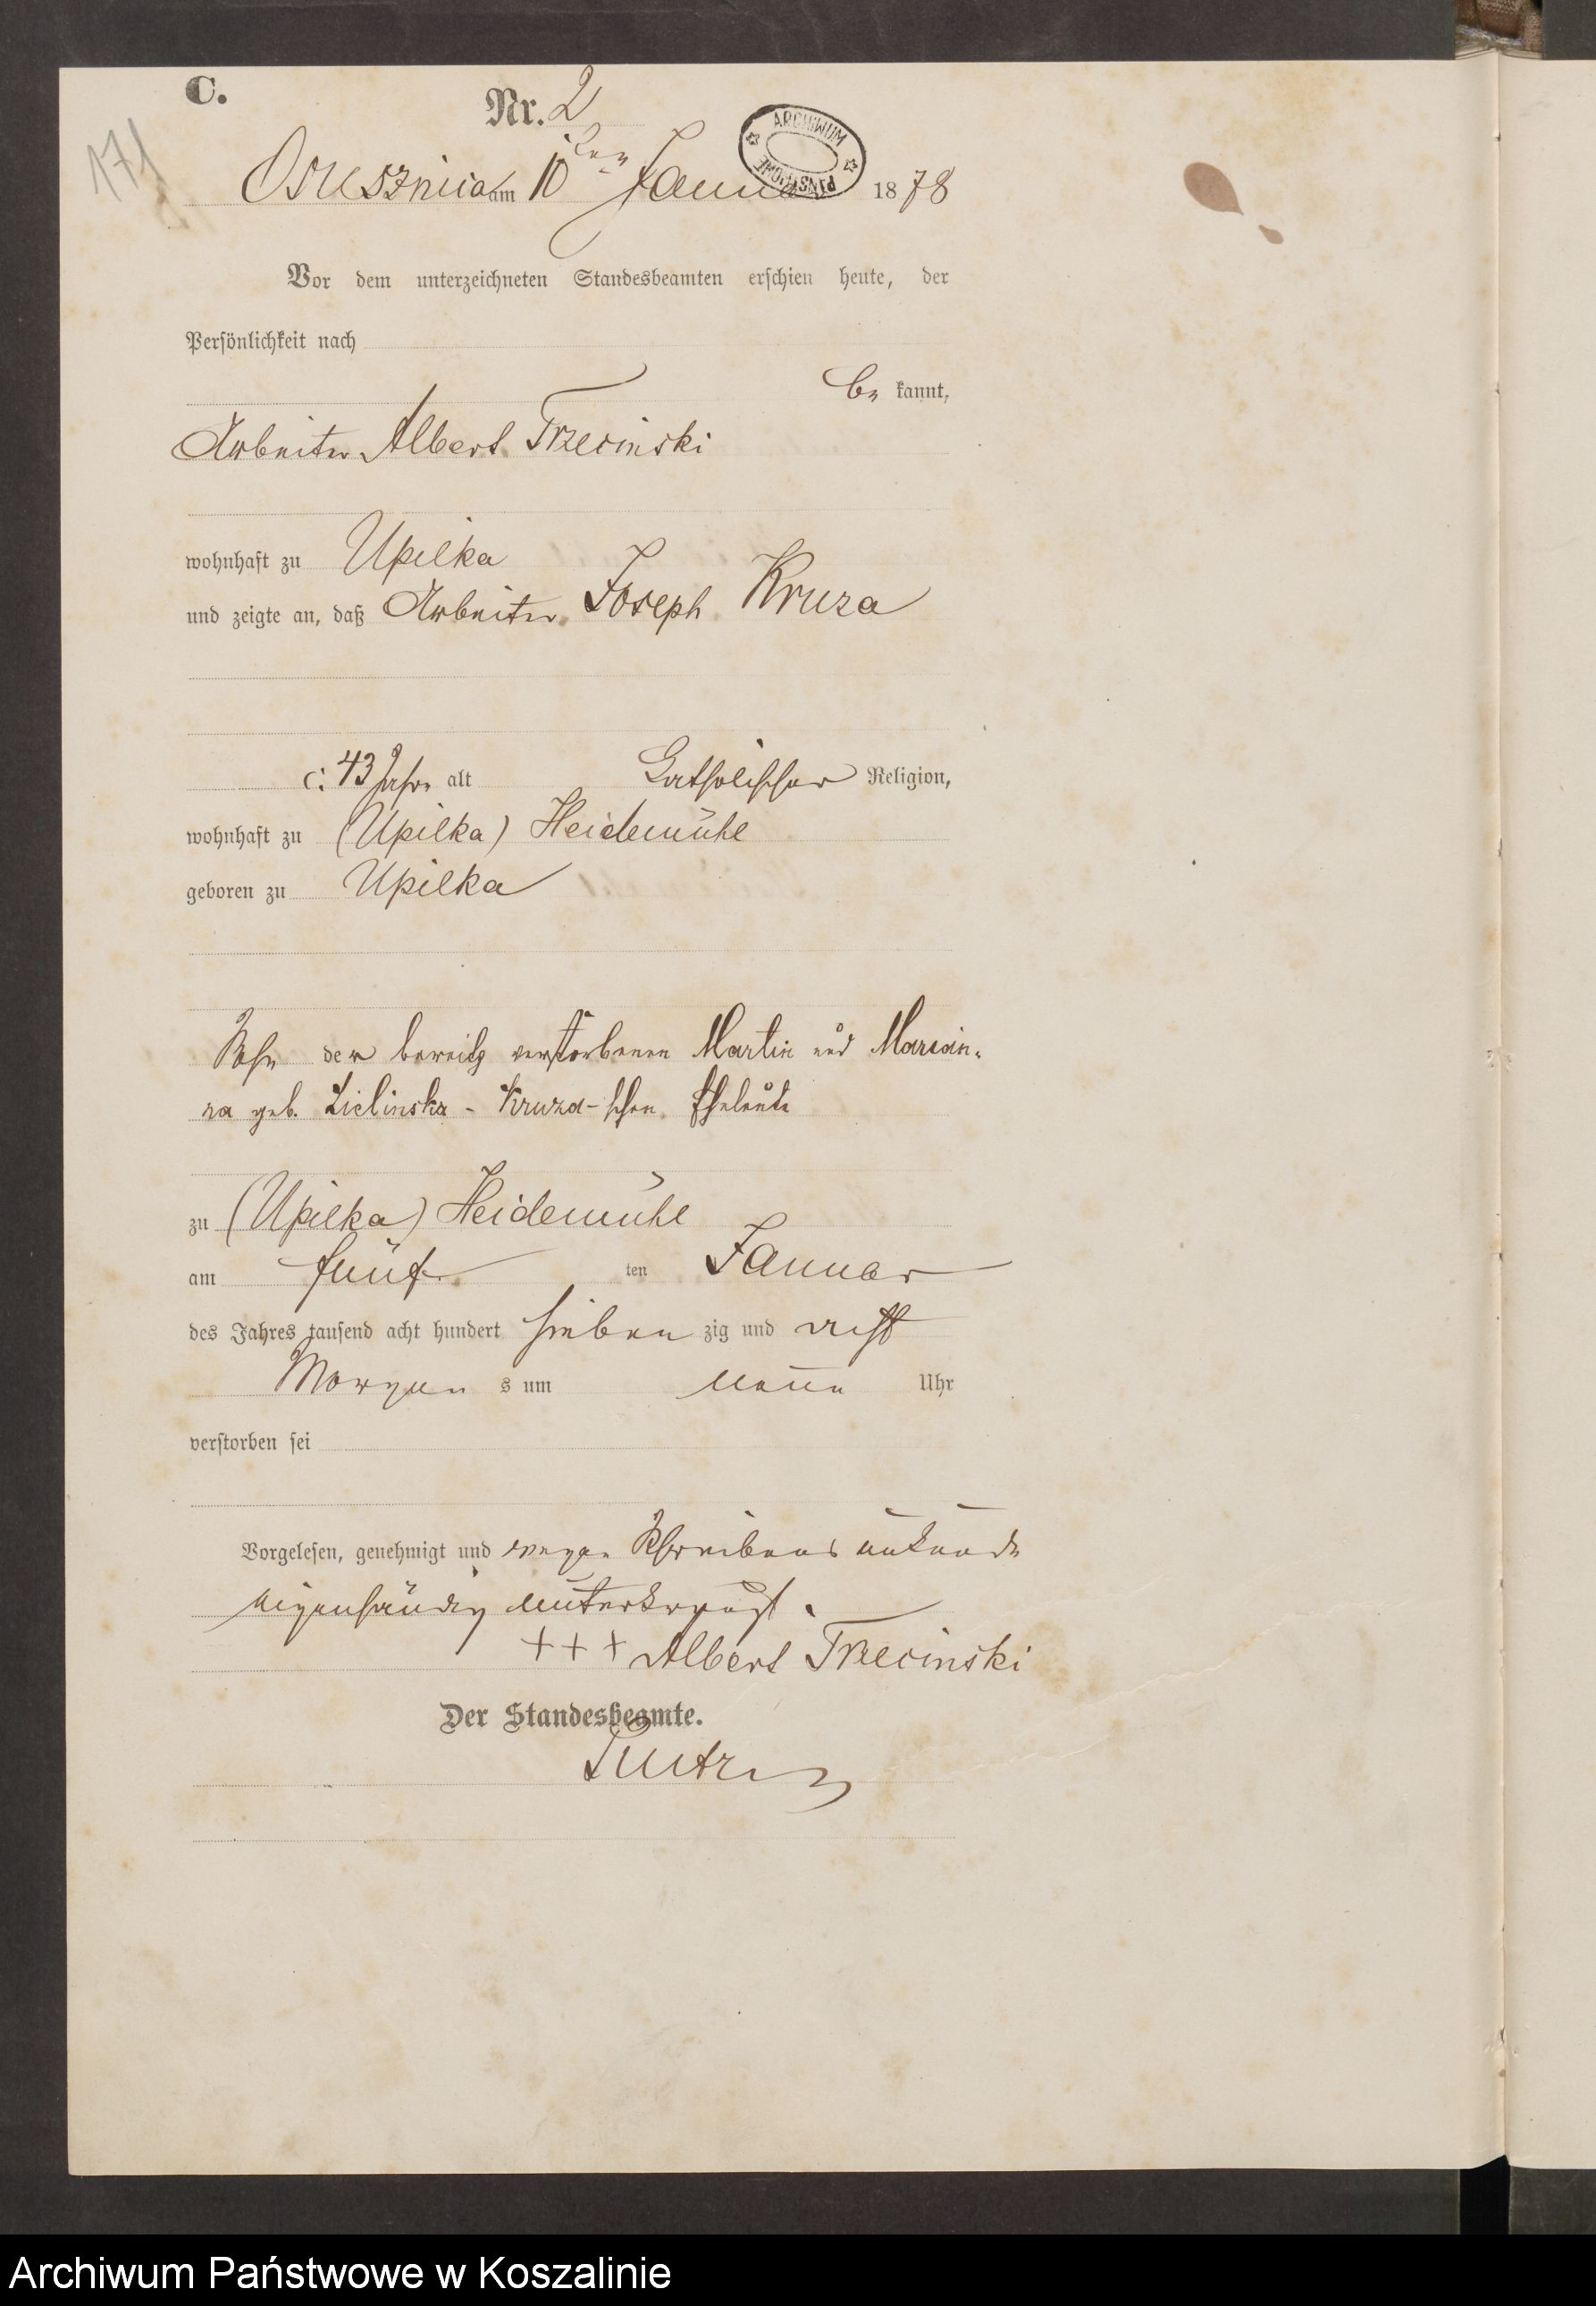 C.
Nr. 2
171
Osusznica am 10 ten Januar 1878
ARCHIWUM PAŃSTWOWE
Vor dem unterzeichneten Standesbeamten erschien heute, der
Persönlichkeit nach
be kannt,
Arbeiter Albert Trzecinski
wohnhaft zu Upilka
und zeigte an, daß Arbeiter Joseph Kruza
c. 43 Jahr alt Catholischer Religion,
wohnhaft zu (Upilka) Heidemühl
geboren zu Upilka
Sohn der bereits verstorbenen Martin und Marian-
na geb. Zielinska - Kruza-schen Eheleute
zu (Upilka) Heidemühl
am fünf ten Januar
des Jahres tausend acht hundert sieben zig und acht
Morgen s um neun Uhr
verstorben sei
Vorgelesen, genehmigt und wegen Schreibens unkunde
eigenhändig unterkreuzt.
+++ Albert Trzecinski
Der Standesbeamte.
Archiwum Państwowe w Koszalinie